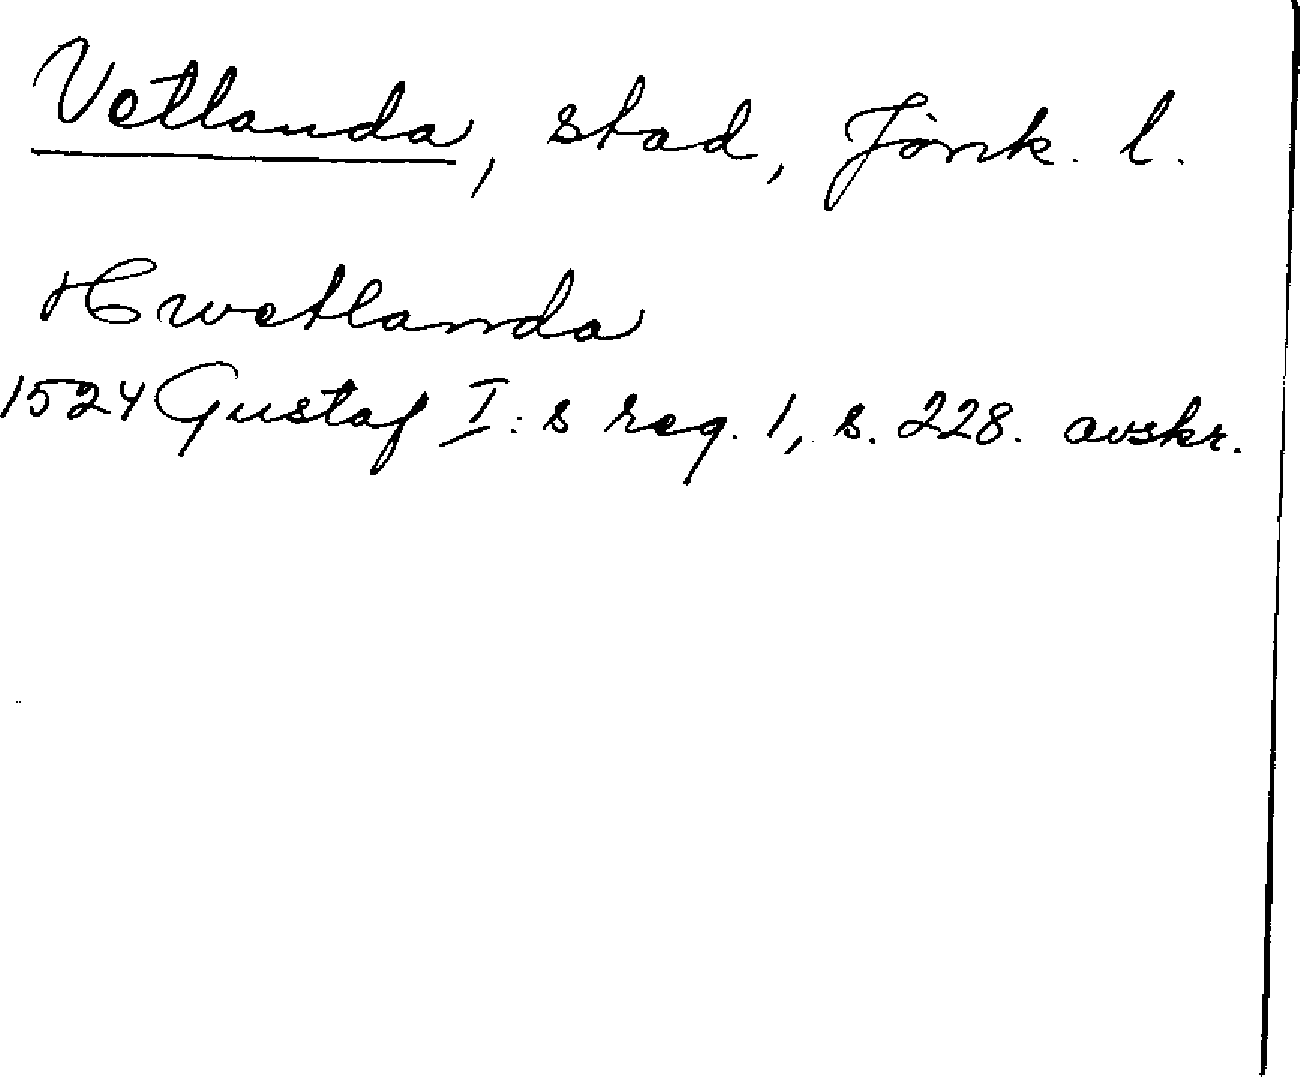 Vetlanda, stad, Jönk. l.
Hwetlanda
1524 Gustaf I:s reg. 1, s. 228. avskr.